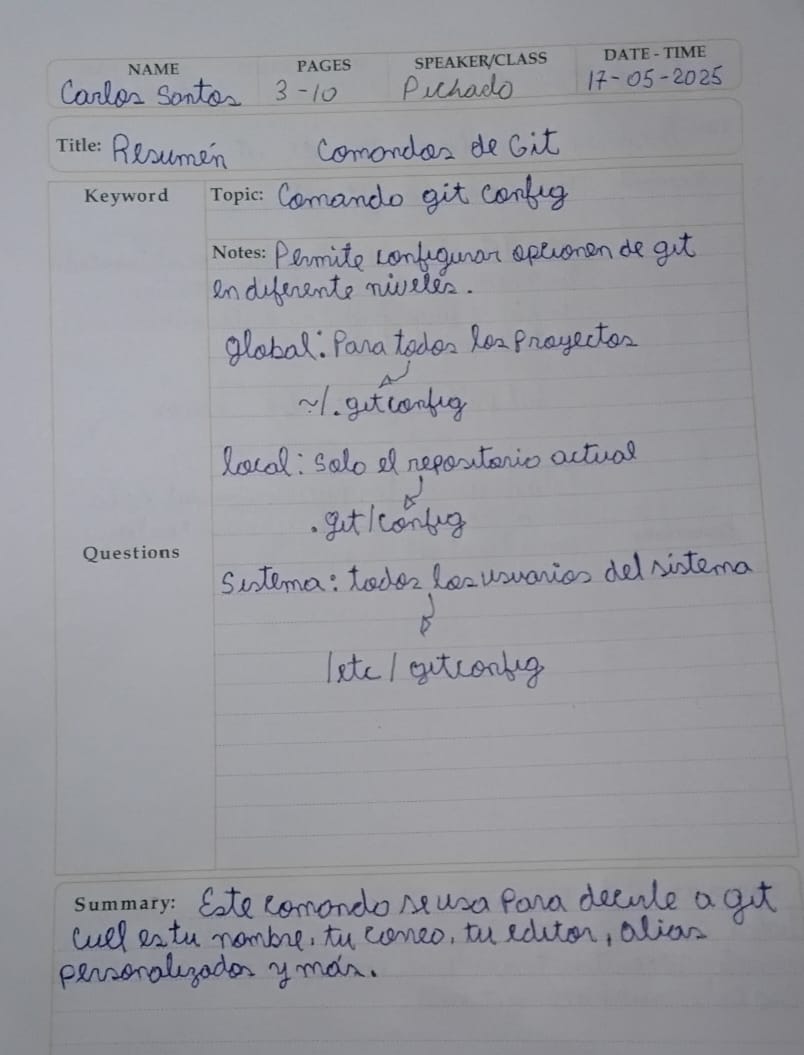 NAME PAGES SPEAKER/CLASS DATE - TIME
Carlos Santos 3-10 Pichado 17-05-2025
Title: Resumén Comandos de Git
Keyword Topic: Comando git config
Notes: Permite configurar opciones de git
en diferente niveles.
global: Para todos los proyectos
~/.gitconfig
local: Solo el repositorio actual
.git/config
Questions
Sistema: todos los usuarios del sistema
/etc/gitconfig
Summary: Este comando se usa Para decirle a git
cuel es tu nombre, tu correo, tu editor, alias
personalizados y más.